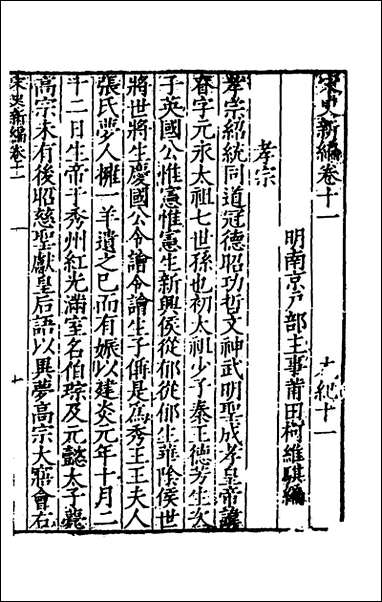 宋史新編卷十一
本紀十一
明南京戸部主事莆田柯維騏編
孝宗
孝宗紹統同道冠德昭功哲文神武明聖成孝皇帝諱
眘字元永太祖七世孫也初太祖少子秦王德芳生
子英國公惟憲惟憲生新興侯從郁從郁生華陰侯世
將世將生慶國公令譮令譮生子偁是爲秀王王夫人
張氏夢人擁一羊遺之已而有娠以建炎元年十月二
十二日生帝于秀州紅光滿室名伯琮及元懿太子薨
高宗未有後昭慈聖獻皇后語以異夢高宗大寤會右
宋史新編卷十一
一